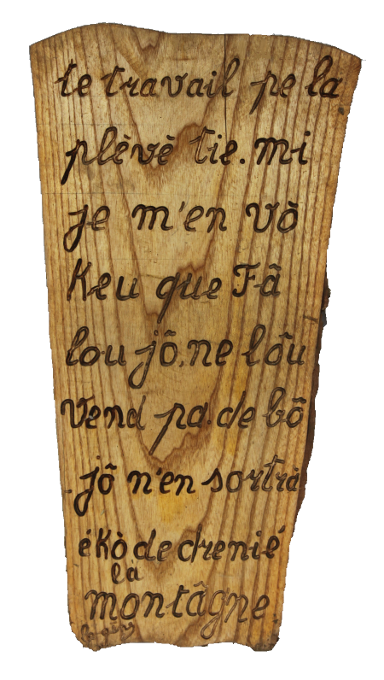 te travail pe la
plèvè tie. mi
je m'en vô
Keu que Fâ
lou jô. ne lôu
Vend pa. de bô
jô n'en sortrà
éKò de drenié
là
montâgne.